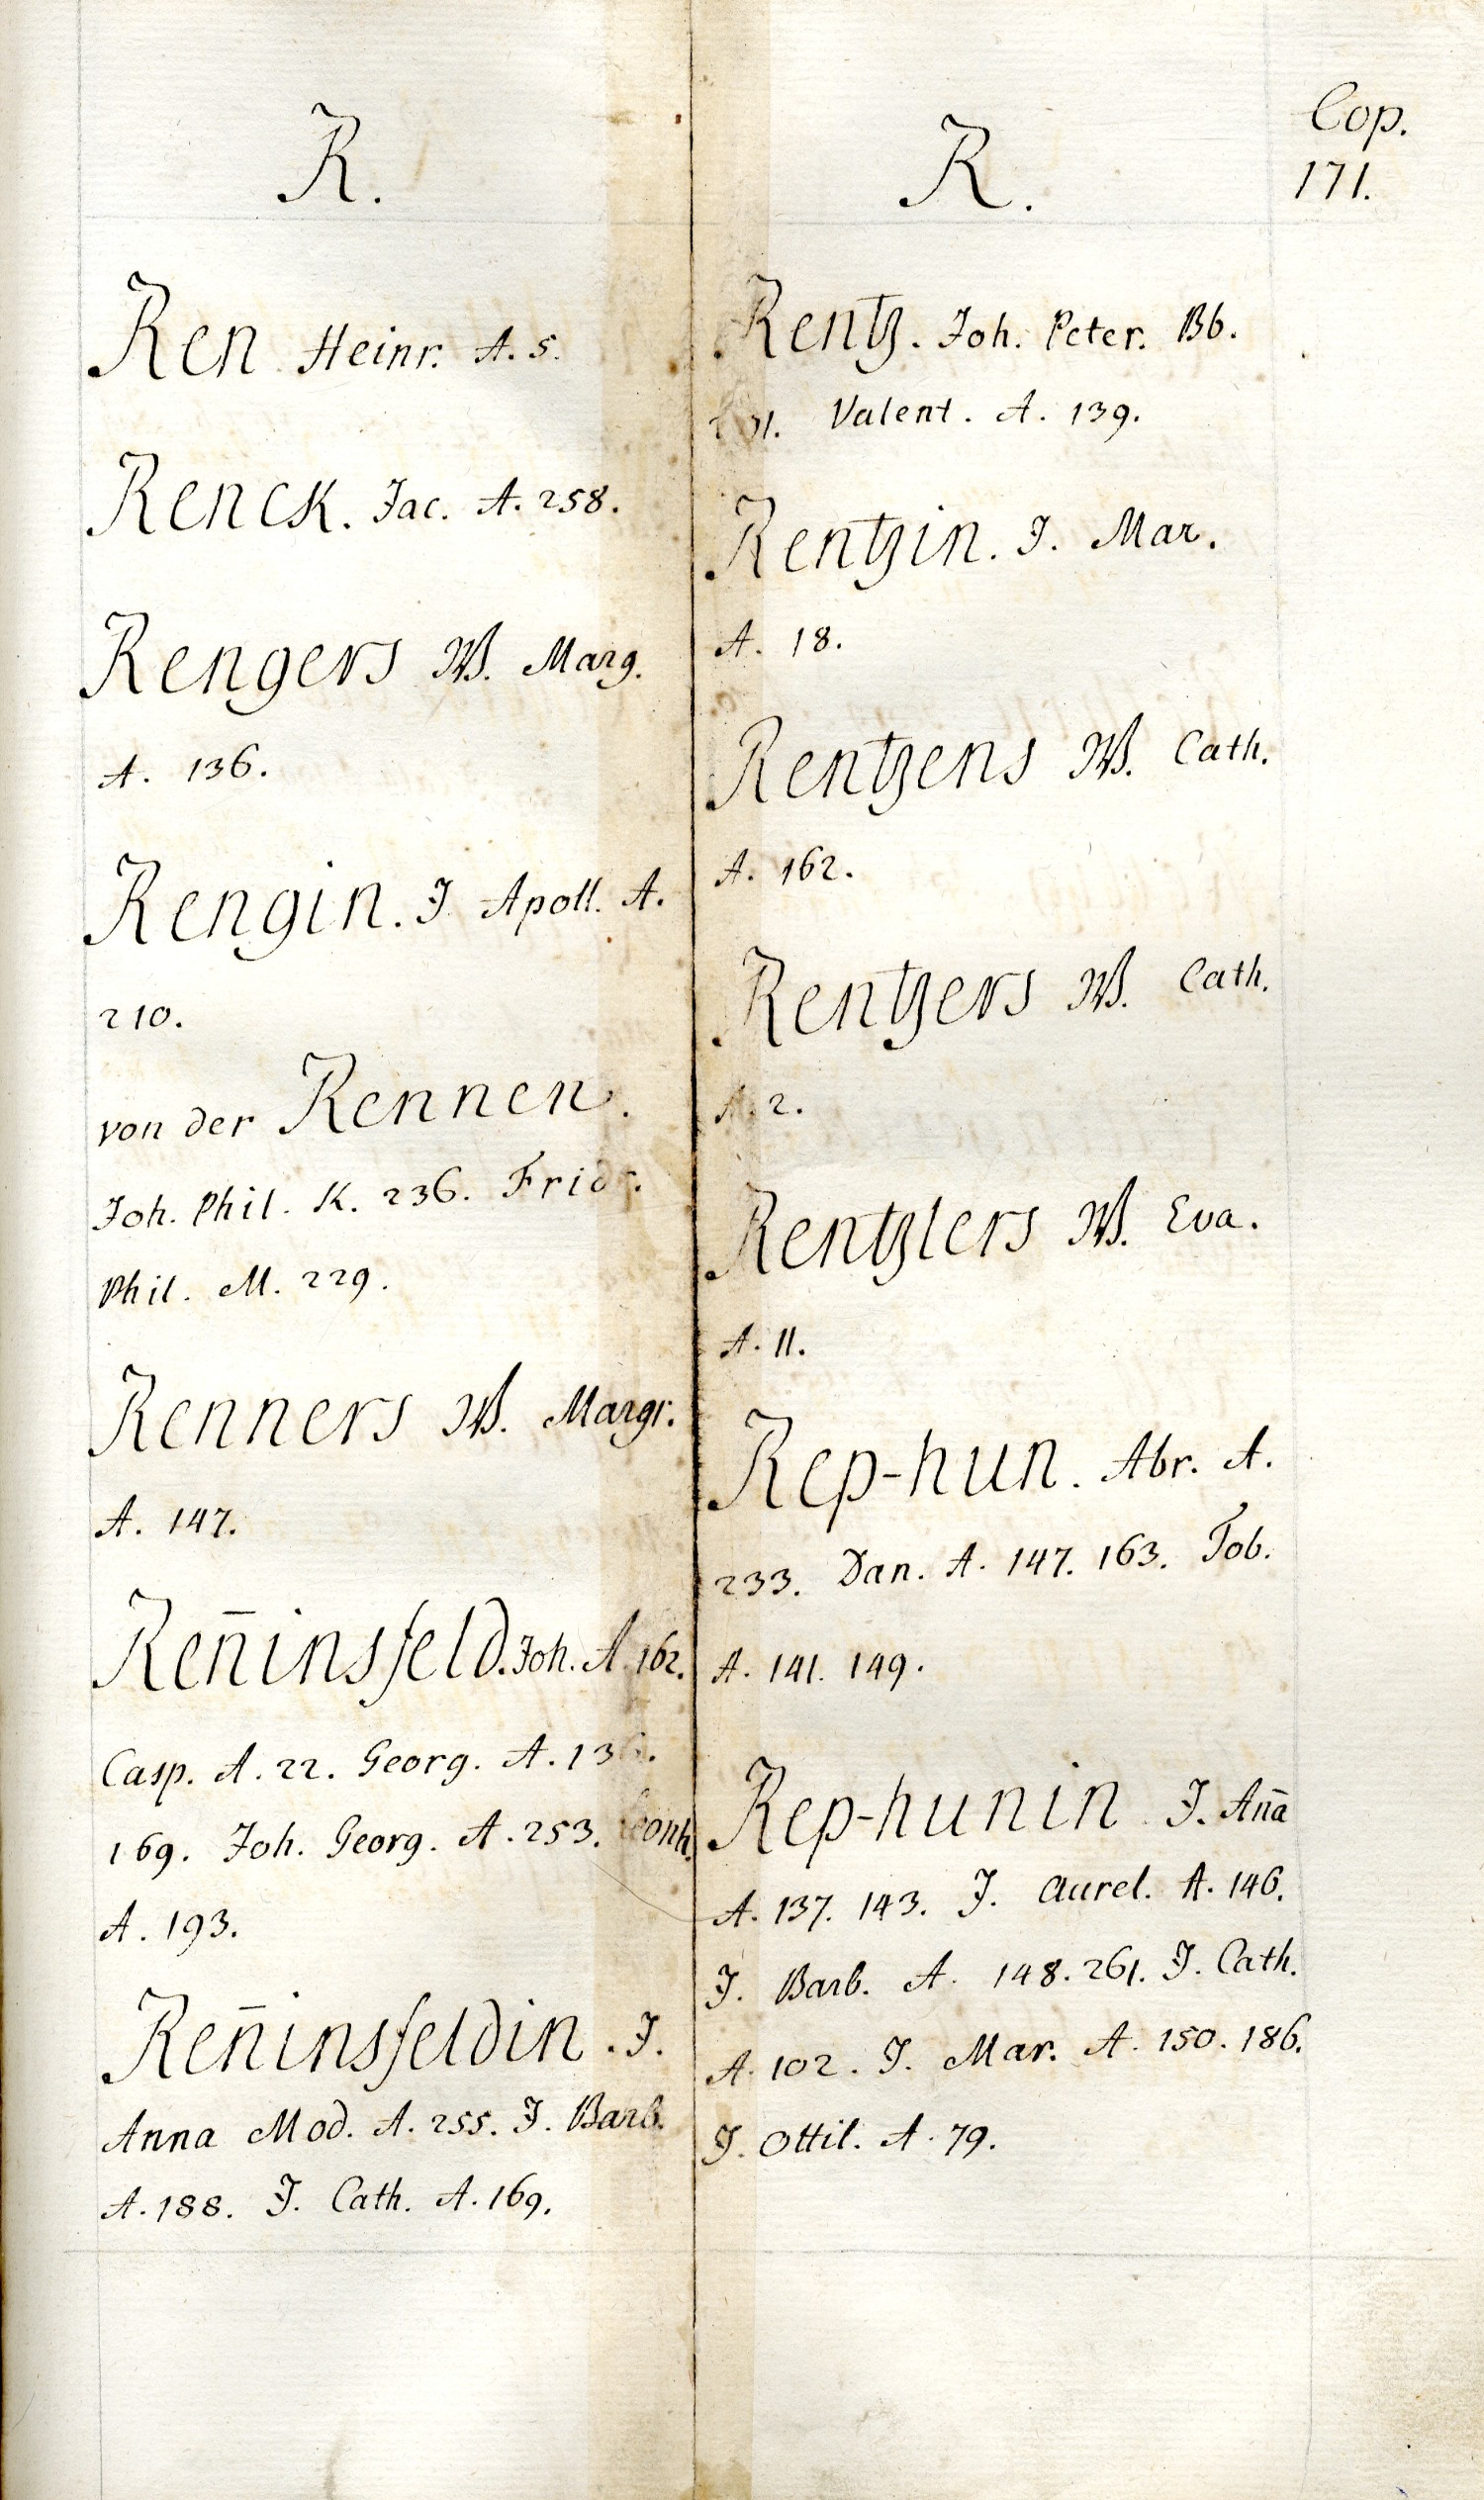 R.
Ren Heinr. A. 5.
Renck. Jac. A. 258.
Rengers W. Marg.
A. 136.
Rengin. J. Apoll. A.
210.
von der Rennen.
Joh. Phil. K. 236. Fridr.
Phil. M. 229.
Renners W. Margr.
A. 147.
Ren̄insfeld. Joh. A. 162.
Casp. A. 22. Georg. A. 136.
169. Joh. Georg. A. 253. Leonh.
A. 193.
Ren̄insfeldin. J.
Anna Mod. A. 255. J. Barb.
A. 188. J. Cath. A. 169.
R.
Cop.
171.
Rentz. Joh. Peter. Bb.
Valent. A. 139.
Rentzin. J. Mar.
A. 18.
Rentzens W. Cath.
A. 162.
Rentzers W. Cath.
A. 2.
Rentzlers W. Eva.
A. 11.
Rep-hun. Abr. A.
233. Dan. A. 147. 163. Tob.
A. 141. 149.
Rep-hunin. J. An̄a
A. 137. 143. J. Aurel. A. 146.
J. Barb. A. 148. 261. J. Cath.
A. 102. J. Mar. A. 150. 186.
J. Ottil. A. 79.